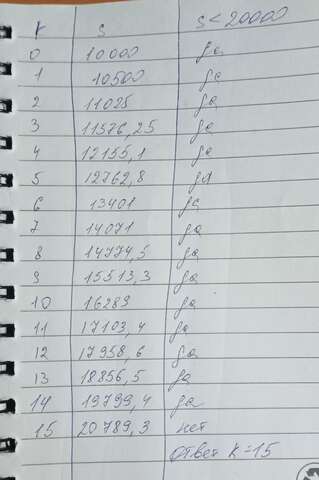 K S S < 20000
0 10000 да
1 10500 да
2 11025 да
3 11576,25 да
4 12155,1 да
5 12762,8 да
6 13401 да
7 14071 да
8 14774,5 да
9 15513,3 да
10 16289 да
11 17103,4 да
12 17958,6 да
13 18856,5 да
14 19799,4 да
15 20789,3 нет
ответ K=15